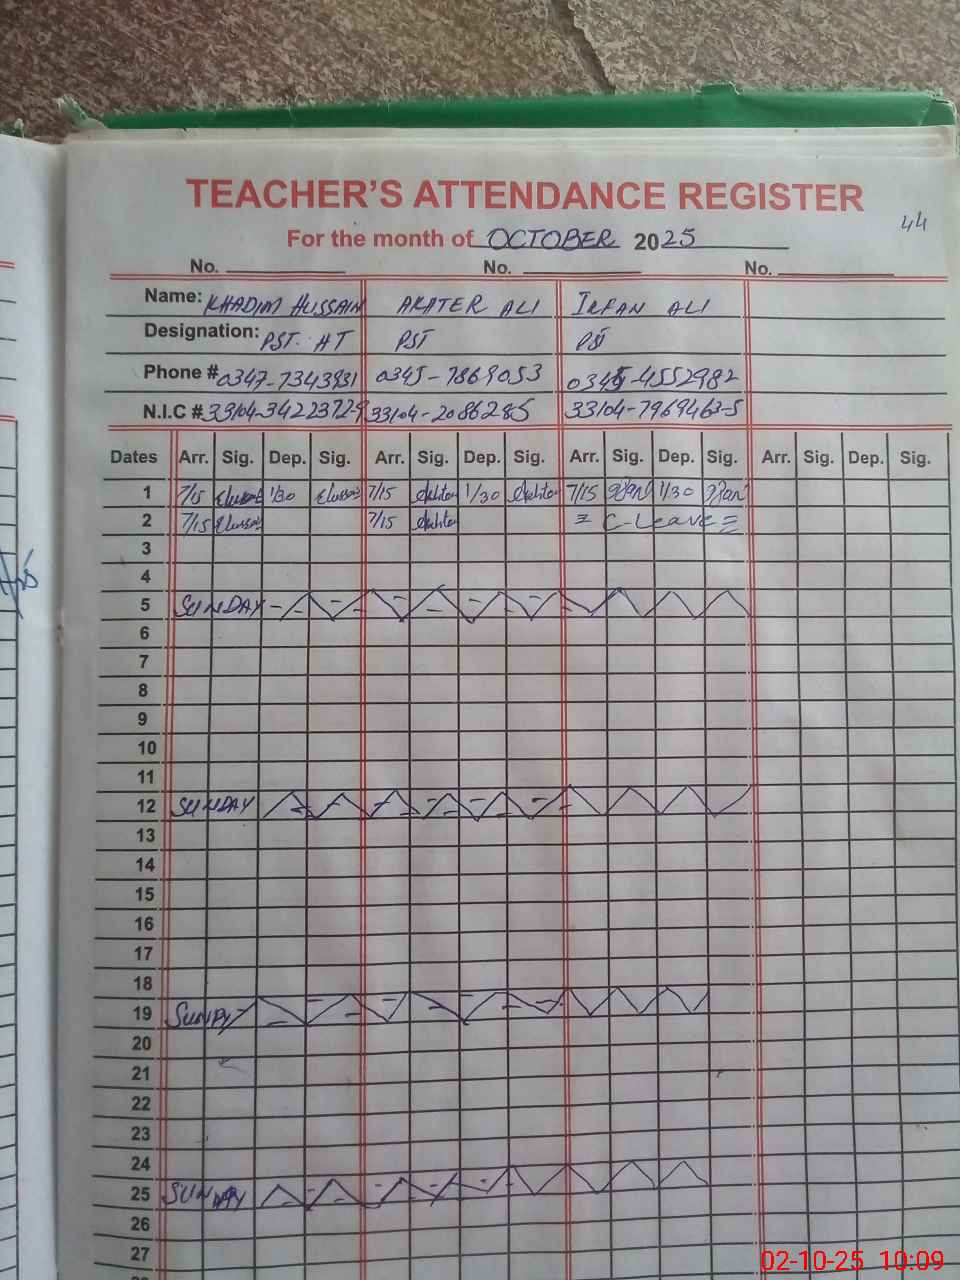 TEACHER'S ATTENDANCE REGISTER
44
For the month of OCTOBER 2025
No. No. No.
Name: KHADIM HUSSAIN AKHTER ALI IRFAN ALI
Designation: PST. HT PST PST
Phone # 0347-7343931 0345-7869053 0345-4552982
N.I.C # 33104-3422372-9 33104-2086285 33104-7969463-5
Dates Arr. Sig. Dep. Sig. Arr. Sig. Dep. Sig. Arr. Sig. Dep. Sig. Arr. Sig. Dep. Sig.
1 7/15 1/30 7/15 Akhter 1/30 Akhter 7/15 1/30
2 7/15 7/15 Akhter C-Leave
3
4
5 SUNDAY
6
7
8
9
10
11
12 SUNDAY
13
14
15
16
17
18
19 SUNDAY
20
21
22
23
24
25 SUNDAY
26
27
02-10-25 10:09